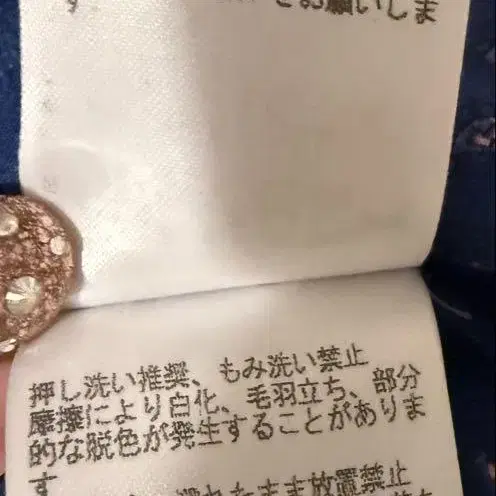 す
お願いしま
押し洗い推奨、もみ洗い禁止
摩擦により白化、毛羽立ち、部分
的な脱色が発生することがありま
す
濡れたまま放置禁止